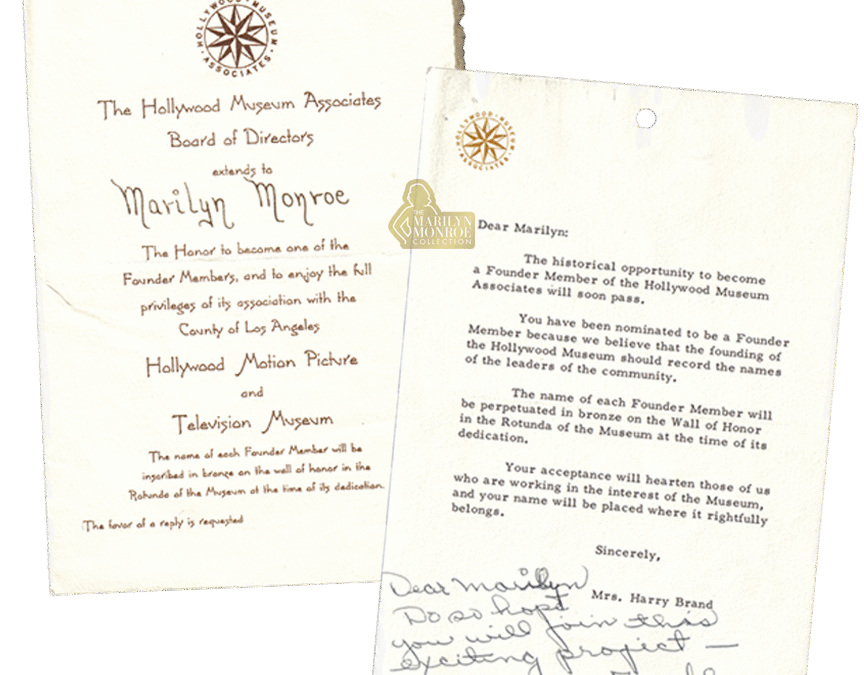 HOLLYWOOD MUSEUM
ASSOCIATES
The Hollywood Museum Associates
Board of Directors
extends to
Marilyn Monroe
The Honor to become one of the
Founder Members, and to enjoy the full
privileges of its association with the
County of Los Angeles
Hollywood Motion Picture
and
Television Museum
The name of each Founder Member will be
inscribed in bronze on the wall of honor in the
Rotunda of the Museum at the time of its dedication.
The favor of a reply is requested
THE
MARILYN
MONROE
COLLECTION
HOLLYWOOD MUSEUM
ASSOCIATES
Dear Marilyn:
The historical opportunity to become
a Founder Member of the Hollywood Museum
Associates will soon pass.
You have been nominated to be a Founder
Member because we believe that the founding of
the Hollywood Museum should record the names
of the leaders of the community.
The name of each Founder Member will
be perpetuated in bronze on the Wall of Honor
in the Rotunda of the Museum at the time of its
dedication.
Your acceptance will hearten those of us
who are working in the interest of the Museum,
and your name will be placed where it rightfully
belongs.
Sincerely,
Mrs. Harry Brand
Dear Marilyn
Do so hope
you will join this
exciting project —